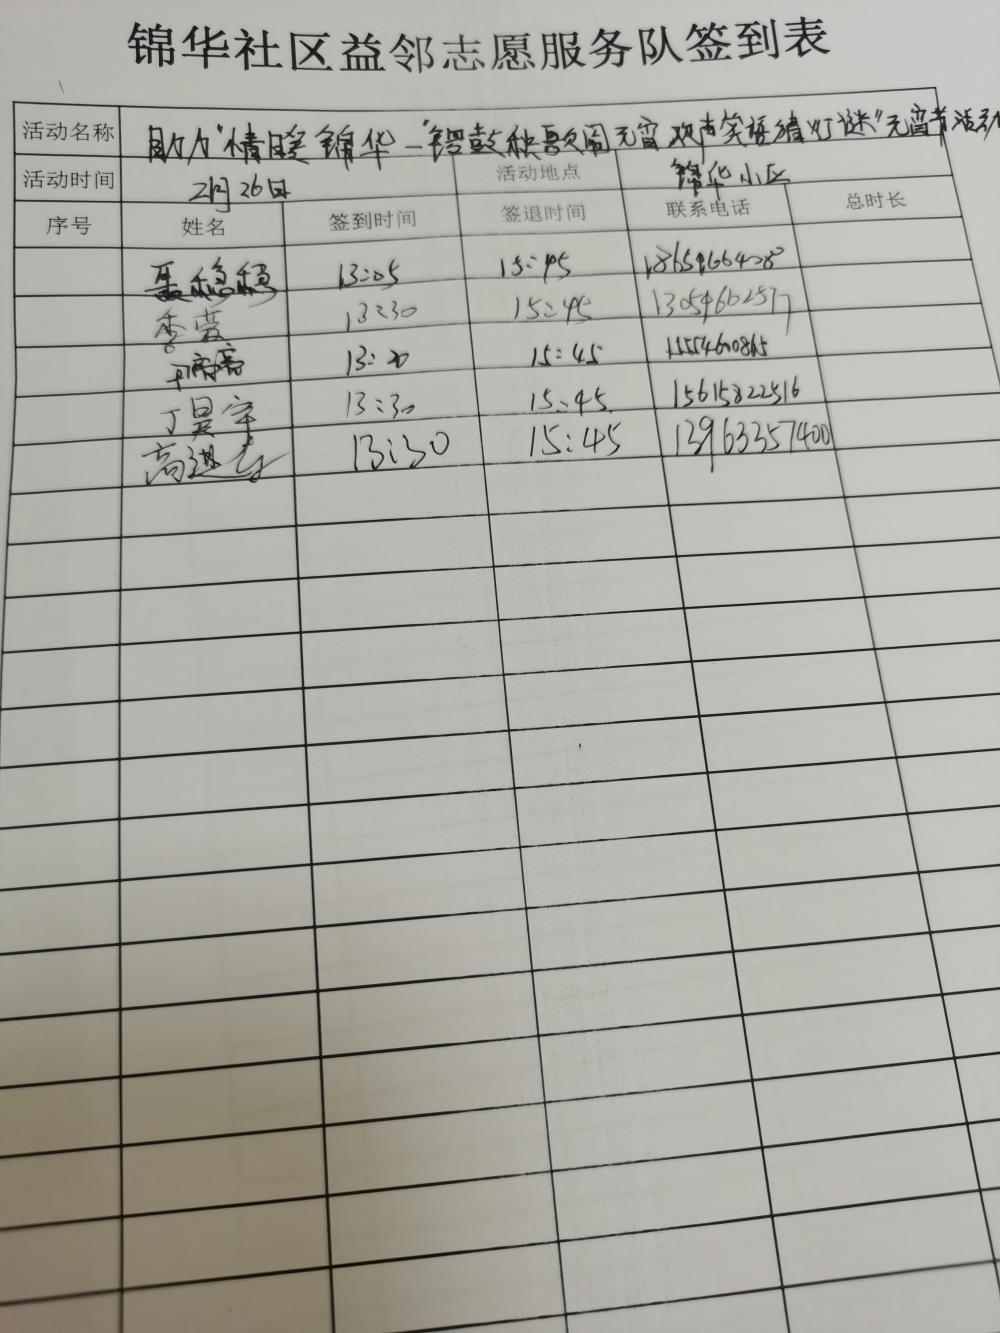 锦华社区益邻志愿服务队签到表
活动名称 助力"情暖锦华—"锣鼓秧歌闹元宵 欢声笑语猜灯谜"元宵节活动
活动时间 2月26日 活动地点 锦华小区
序号 姓名 签到时间 签退时间 联系电话 总时长
聂稳稳 13:05 15:45
李莹 13:30 15:45 13059602577
13:20 15:45
丁昊宇 13:30 15:45 15615822516
高进 13:30 15:45 13963357400